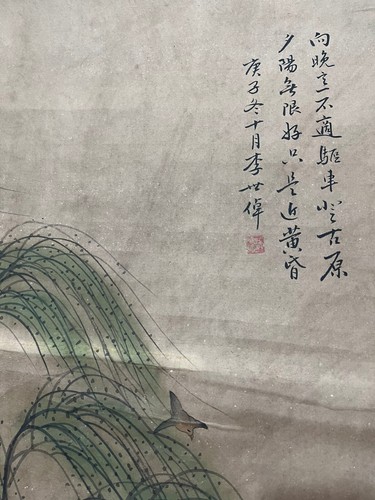 向晚意不適驅車登古原
夕陽無限好只是近黄昏
庚子冬十月李世倬